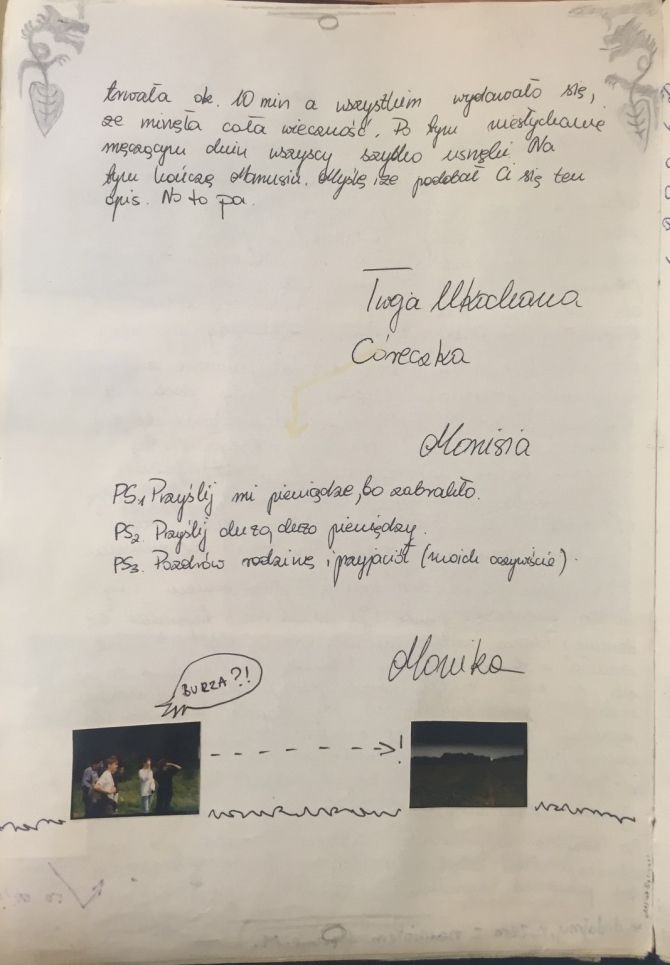 trwała ok. 10 min a wszystkim wydawało się,
że minęła cała wieczność. Po tym niesłychanie
męczącym dniu wszyscy szybko usnęli. Na
tym kończę Mamusiu. Myślę że podobał Ci się ten
opis. No to pa.
Twoja Ukochana
Córeczka
Monisia
PS1 Przyślij mi pieniądze, bo zabrakło.
PS2. Przyślij dużo, dużo pieniędzy.
PS3. Pozdrów rodzinę i przyjaciół (moich oczywiście).
Monika
BURZA?!
!